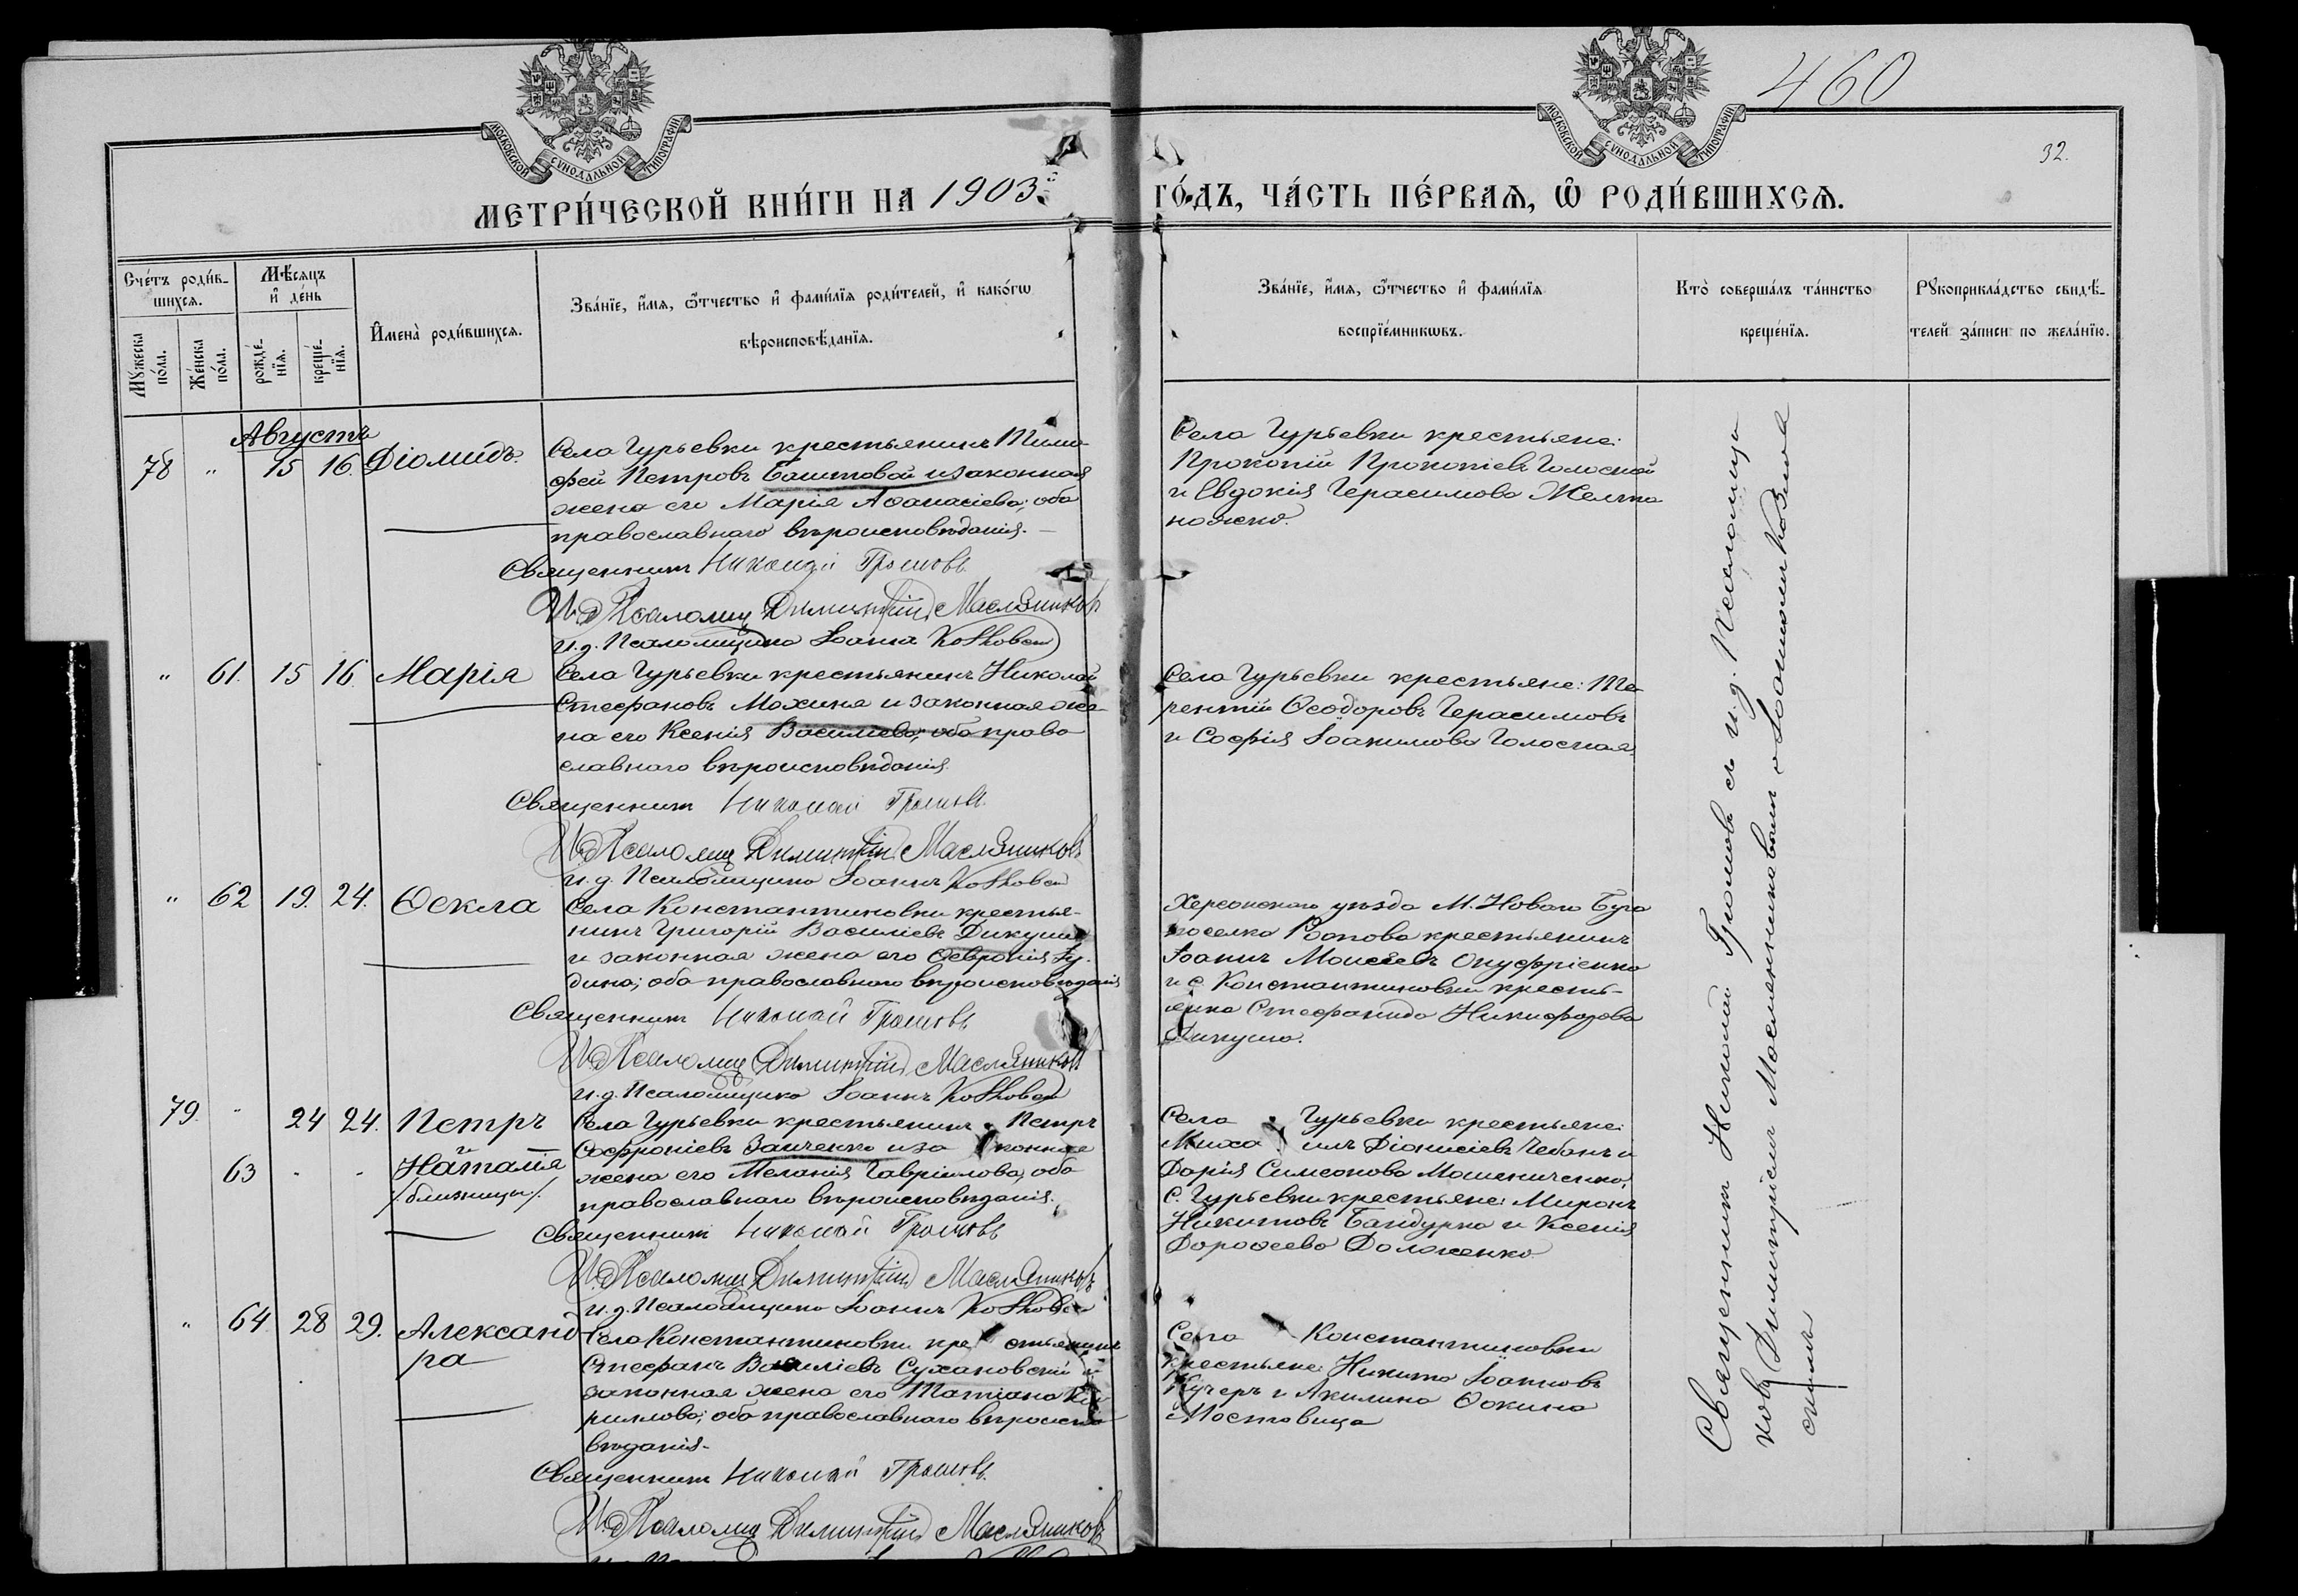 МОСКОВСКОЙ СѴНОДАЛЬНОЙ ТИПОГРАФІИ
МОСКОВСКОЙ СѴНОДАЛЬНОЙ ТИПОГРАФІИ
460
32.
МЕТРИ́ЧЕСКОЙ КНИ́ГИ НА 1903й
ГО́ДЪ, ЧА́СТЬ ПЕ́РВАѦ, Ѡ҃ РОДИ́ВШИХСѦ.
Сче́тъ роди́в-
шихсѧ.
Мѣ́сяцъ
и҆ де́нь
Мꙋ́жеска
по́ла.
Же́нска
по́ла.
рожде́-
нїѧ.
креще́-
нїѧ.
И҆мена̀ роди́вшихсѧ.
Зва́нїе, и҆́мѧ, ѻ҆́тчество и҆ фамѝлїѧ роди́телей, и҆ како́гѡ
вѣроисповѣ́данїѧ.
Зва́нїе, и҆́мѧ, ѻ҆́тчество и҆ фамѝлїѧ
воспрїе́мникѡвъ.
Кто̀ соверша́лъ та́инство
креще́нїѧ.
Рꙋкоприкла́дство свидѣ́-
телей за́писи по жела́нїю.
Августъ
78 " 15 16. Діомидъ.
Села Гурьевки крестьянинъ Тимо-
фей Петровъ Баштовой и законная
жена его Марія Аѳанасіева; оба
православнаго вѣроисповѣданія.
Священникъ Николай Громовъ
И. д. Псаломщ Димитрій Маслянниковъ
и. д. Псаломщика Іоаннъ
Села Гурьевки крестьяне:
Прокопій Прокопіевъ Голосной
и Евдокія Герасимова Желто-
ножко.
" 61. 15 16 Марія
Села Гурьевки крестьянинъ Николай
Стефановъ Махиня и законная же-
на его Ксенія Василіева; оба право
славнаго вѣроисповѣданія.
Священникъ Николай Громовъ
И. д. Псаломщ Димитрій Маслянниковъ
и. д. Псаломщика Іоаннъ
Села Гурьевки крестьяне: Те-
рентій Ѳеодоровъ Герасимовъ
и Софія Іоакимова Голосная
" 62 19. 24. Ѳекла
Села Константиновки крестья-
нинъ Григорій Василіевъ Дикуша
и законная жена его Ѳевронія Іу-
дина; оба православнаго вѣроисповѣданія
Священникъ Николай Громовъ
И. д. Псаломщ Димитрій Маслянниковъ
и. д. Псаломщика Іоаннъ
Херсонскаго уѣзда М. Новаго Буга
поселка крестьянинъ
Іоаннъ Моисеевъ Онуфріенко
и с. Константиновки кресть-
янка Стефанида Никифорова
Дикуша.
79. " 24 24. Петръ
и
63 - - Наталія
/близнецы/.
Села Гурьевки крестьянинъ Петръ
Софроніевъ Заиченко и за конная
жена его Меланія Гавріилова; оба
православнаго вѣроисповѣданія.
Священникъ Николай Громовъ
И. д. Псаломщ Димитрій Маслянниковъ
и. д. Псаломщика Іоаннъ
Села Гурьевки крестьяне:
Миха илъ Діонисіевъ Чебанъ и
Дарія Симеонова Мошениченко;
с. Гурьевки крестьяне: Миронъ
Никитовъ Бандурка и Ксенія
Дороѳеева Доложенко
" 64 28 29. Александ-
ра
Села Константиновки кре стьянинъ
Стефанъ Василіевъ Сухановскій и
законная жена его Татіана Ки-
риллова; оба православнаго вѣроиспо-
вѣданія.
Священникъ Николай Громовъ
И. д. Псаломщ Димитрій Маслянниковъ
Села Константиновки
крестьяне: Никита Іоанновъ
Кучеръ и Акилина Ѳокина
Мостовица
Священникъ Николай Громовъ съ и. д. Псаломщи
ковъ Димитріемъ Маслянниковымъ и Іоанномъ